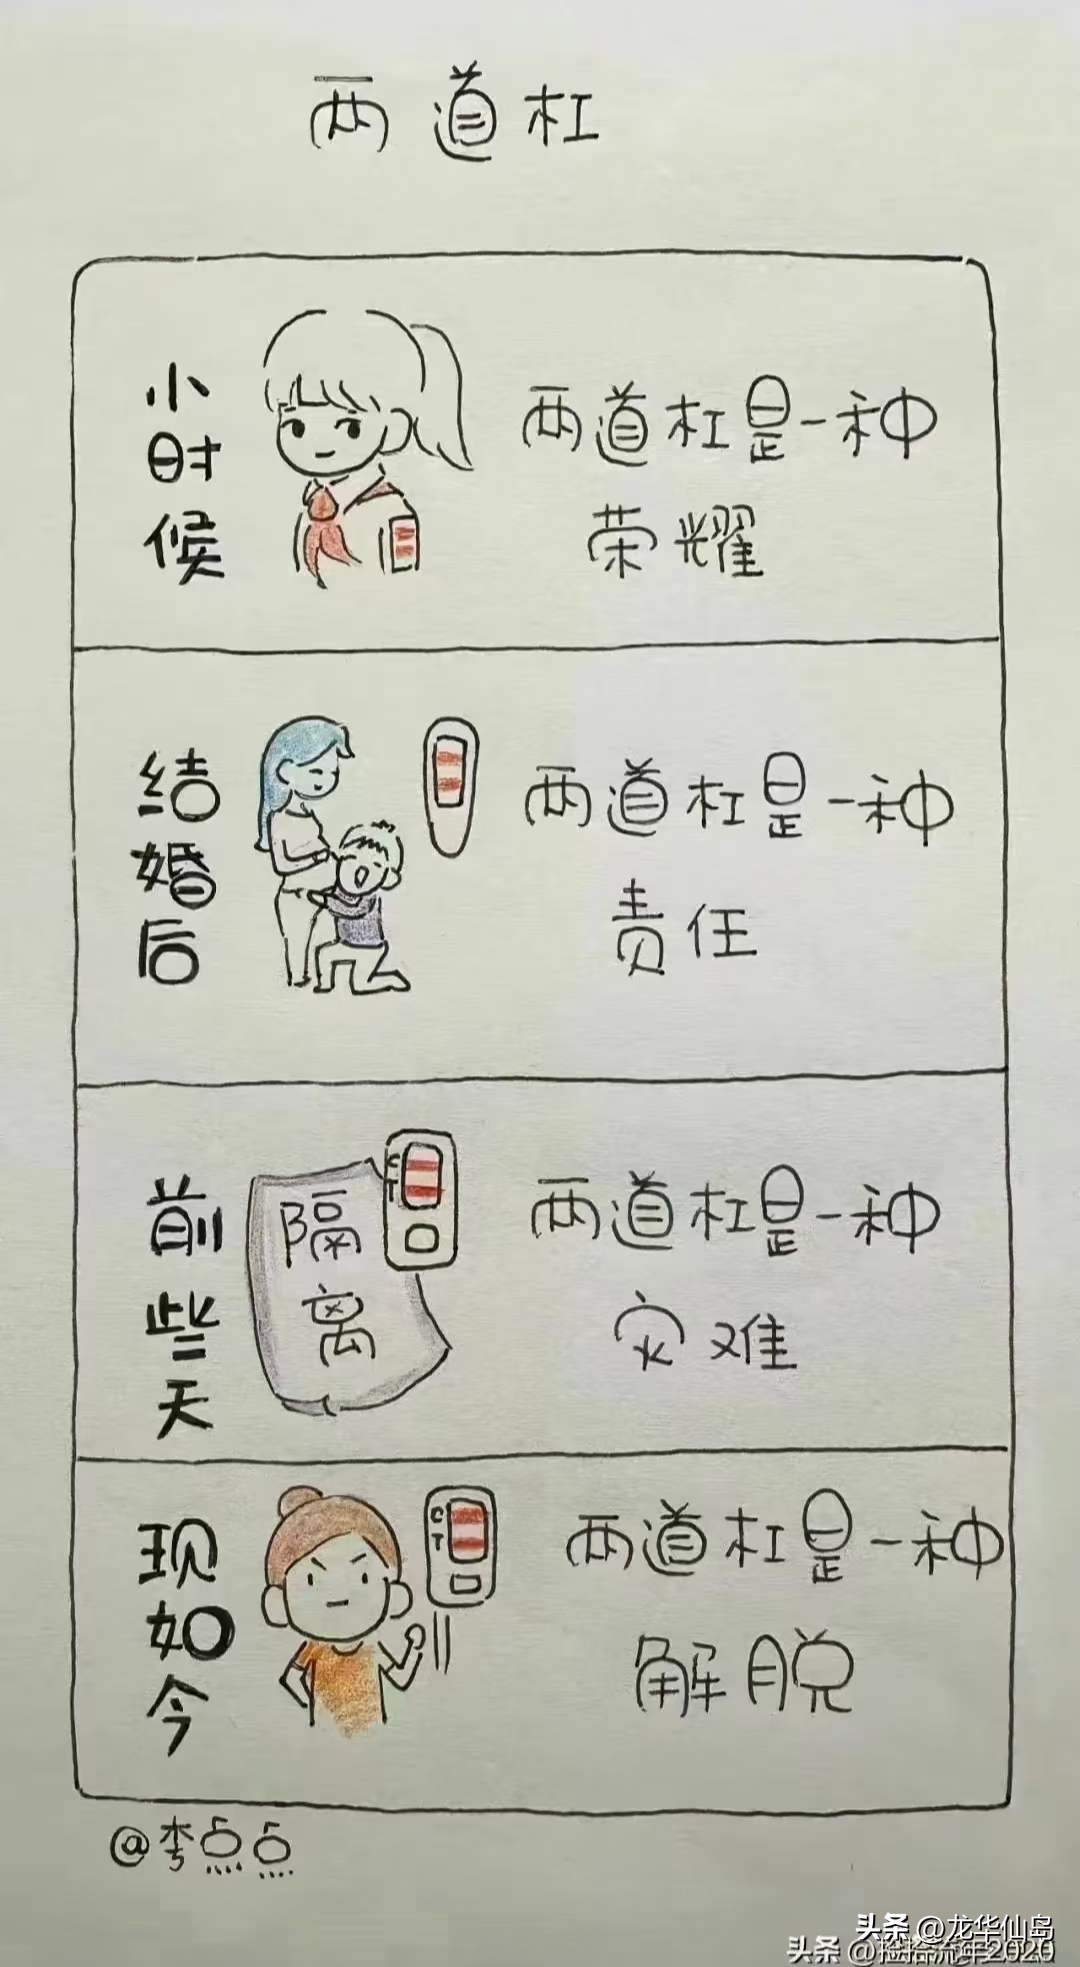 两道杠
小时候
两道杠是一种
荣耀
结婚后
两道杠是一种
责任
前些天
隔离
C
T
两道杠是一种
灾难
现如今
C
T
两道杠是一种
解脱
@李点点
头条 @龙华仙岛
头条 @捡拾流年2020